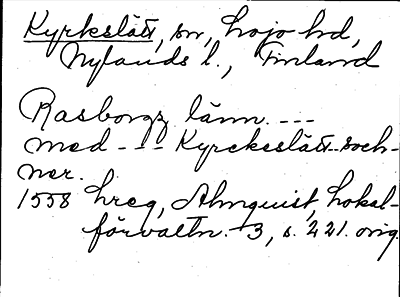 Kyrkslätt, sn, Lojo hd,
Nylands l., Finland
Rasborgz länn. ---
med --- Kyrckeslätt soch-
ner.
1558 hreg, Almquist, Lokal-
förvaltn. 3, s. 221. orig.